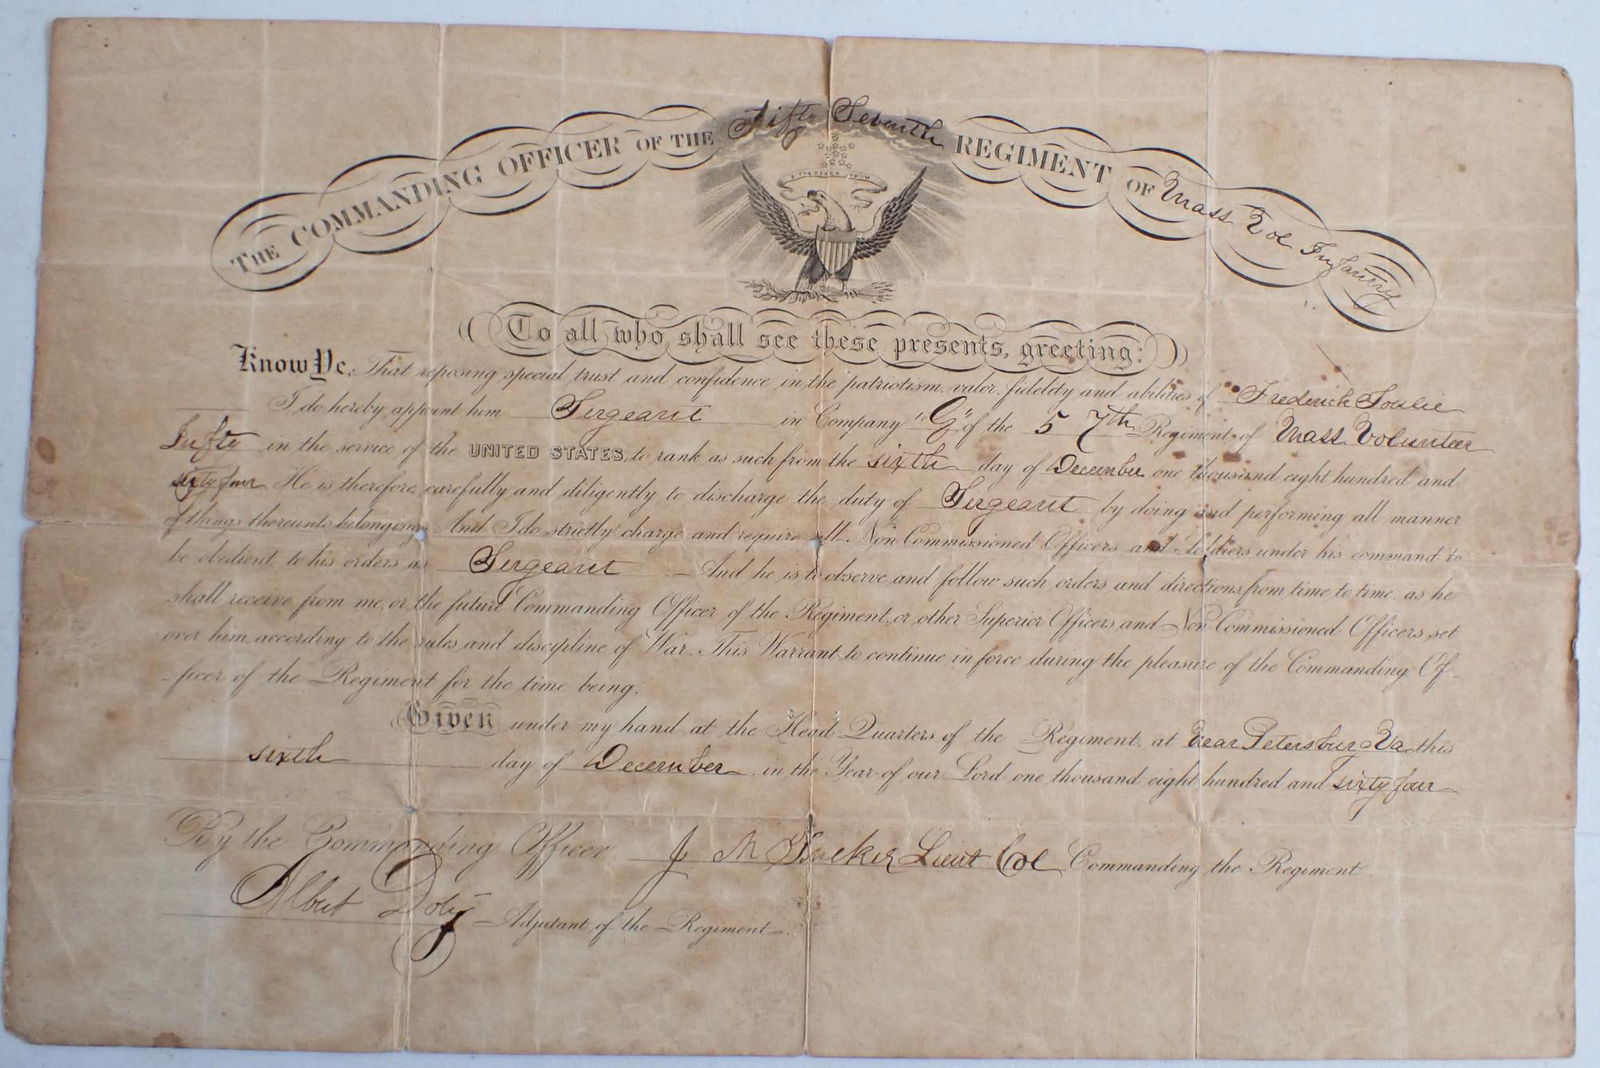 THE COMMANDING OFFICER OF THE Fifty Seventh REGIMENT OF Mass Vol Infantry
To all who shall see these presents, greeting:
Know Ye, That reposing special trust and confidence in the patriotism, valor, fidelity and abilities of Frederick
I do hereby appoint him Sergeant in Company "G" of the 57th Regiment of Mass Volunteer
Infty in the service of the UNITED STATES, to rank as such from the sixth day of December one thousand eight hundred and
sixty four He is therefore, carefully and diligently to discharge the duty of Sergeant by doing and performing all manner
of things thereunto belonging. And I do strictly charge and require all Non Commissioned Officers and Soldiers under his command to
be obedient to his orders as Sergeant. And he is to observe and follow such orders and directions, from time to time, as he
shall receive from me, or the future Commanding Officer of the Regiment, or other Superior Officers and Non Commissioned Officers, set
over him, according to the rules and discipline of War. This Warrant to continue in force during the pleasure of the Commanding Of-
-ficer of the Regiment for the time being.
Given under my hand at the Head Quarters of the Regiment, at near Petersburg Va this
sixth day of December in the Year of our Lord one thousand eight hundred and sixty four
By the Commanding Officer J M Tucker Lieut Col Commanding the Regiment.
Albert Doty Adjutant of the Regiment.